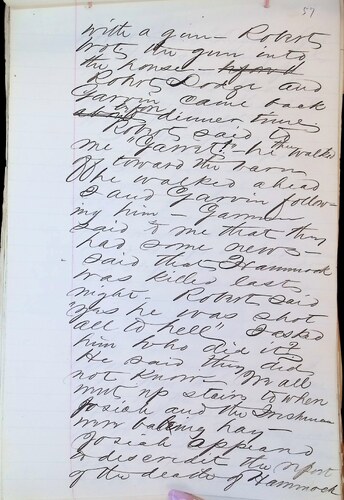 57
with a gun - Robert
took the gun into
the house -
Robert Dodge and
Garvin came back
about dinner time
Robert said to
me "Garrett - he walked
off toward the barn
he walked ahead
I and Garvin follow-
ing him - Garvin
said to me that they
had some news -
said that Hammock
was killed last
night. Robert said
"yes he was shot
all to hell" I asked
him who did it?
He said they did
not know. We all
went up stairs to when
Josiah and the Irishman
were baling hay -
Josiah appeared
to discredit the report
of the death of Hammock